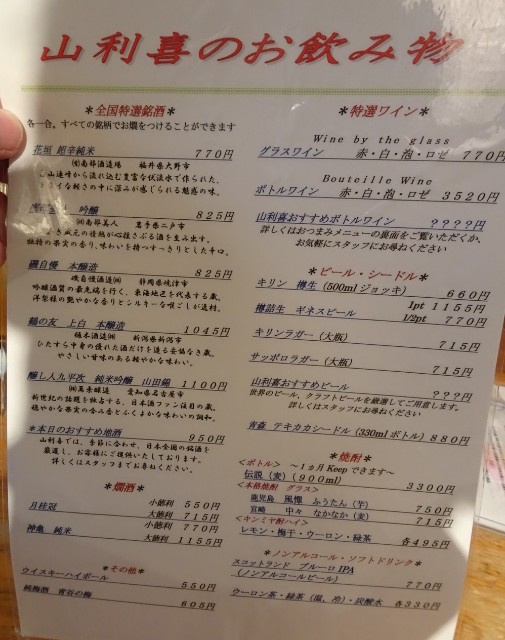 山利喜のお飲み物
＊全国特選銘酒＊
各一合。すべての銘柄でお燗をつけることができます
花垣 超辛純米 770円
㈲南部酒造場 福井県大野市
山連峰から流れ込む豊富な伏流水で作られた、
ライな軽さの中に深みが感じられる魅惑の味。
吟醸 825円
㈱南部美人 岩手県二戸市
蔵元の情熱が心揺さぶる酒を生み出す。
独特の果実の香り、味わいを持つすっきりとした辛口。
磯自慢 本醸造 825円
磯自慢酒造㈱ 静岡県焼津市
吟醸酒質の最先端を行く、東海地区を代表する蔵。
洋梨様の艶やかな香りとシルキーな喉ごしが逸材。
鶴の友 上白 本醸造 1045円
樋木酒造㈱ 新潟県新潟市
ひたすら中身の優れた酒だけを造る妥協なき蔵。
やさしい甘味のある軽やかな味わい。
醸し人九平次 純米吟醸 山田錦 1100円
㈱萬乗醸造 愛知県名古屋市
新世紀の話題を独占する、日本酒ファン注目の蔵。
穏やかな果実の含み香とふくよかな味わいの調和。
＊本日のおすすめ地酒 950円
山利喜では、季節に合わせ、日本全国の銘酒を
厳選し、お客様にご提供いたしております。
詳しくはスタッフまでお尋ねください。
＊燗酒＊
月桂冠 小徳利 550円
大徳利 715円
神亀 純米 小徳利 770円
大徳利 1155円
＊その他＊
ウイスキーハイボール 550円
純梅酒 青谷の梅 605円
＊特選ワイン＊
Wine by the glass
グラスワイン 赤・白・泡・ロゼ 770円
Bouteille Wine
ボトルワイン 赤・白・泡・ロゼ 3520円
山利喜おすすめボトルワイン ????円
詳しくはおつまみメニューの裏面をご覧いただくか、
お気軽にスタッフにお尋ねください
＊ビール・シードル＊
キリン 樽生 (500mlジョッキ) 660円
樽詰生 ギネスビール 1pt 1155円
1/2pt 770円
キリンラガー（大瓶） 715円
サッポロラガー（大瓶） 715円
山利喜おすすめビール ????円
世界のビール、クラフトビールを厳選してご用意します。
詳しくはスタッフにお尋ねください
青森 テキカカシードル (330mlボトル) 880円
＊焼酎＊
＜ボトル＞ ～1ヵ月Keepできます～
伝説（麦）(900ml) 3300円
＜本格焼酎 グラス＞
鹿児島 風憚 ふうたん（芋）
宮崎 中々 なかなか（麦） 750円
＜キンミヤ酎ハイ＞ 715円
レモン・梅干・ウーロン・緑茶 各495円
＊ノンアルコール・ソフトドリンク＊
スコットランド ブルーロIPA
(ノンアルコールビール) 770円
ウーロン茶・緑茶（温、冷）・炭酸水 各330円